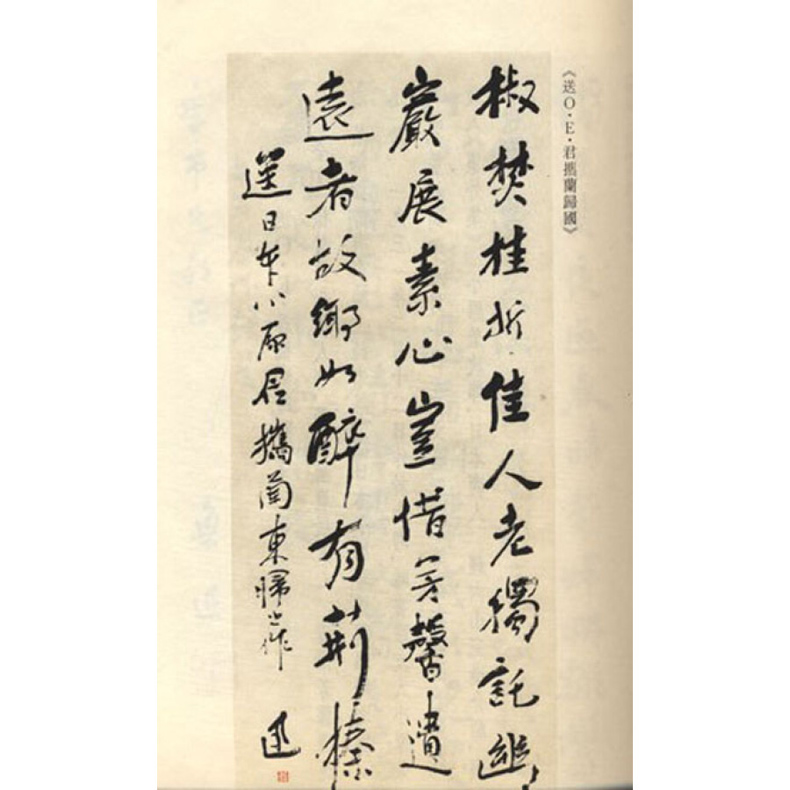 《送O·E·君攜蘭歸國》
椒焚桂折佳人老獨託幽
巖展素心豈惜芳馨遺
遠者故鄉如醉有荊榛
送日本小原君攜蘭東歸之作 迅